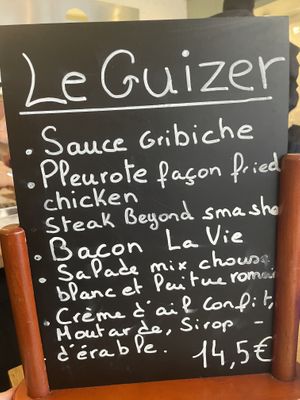 Le Guizer
• Sauce Gribiche
• Pleurote façon fried
chicken
Steak Beyond smashe
• Bacon La Vie
• Salade mix chouse
blanc et laitue romai
• Crème d'ail confit,
Moutarde, Sirop -
d'érable. 14,5€